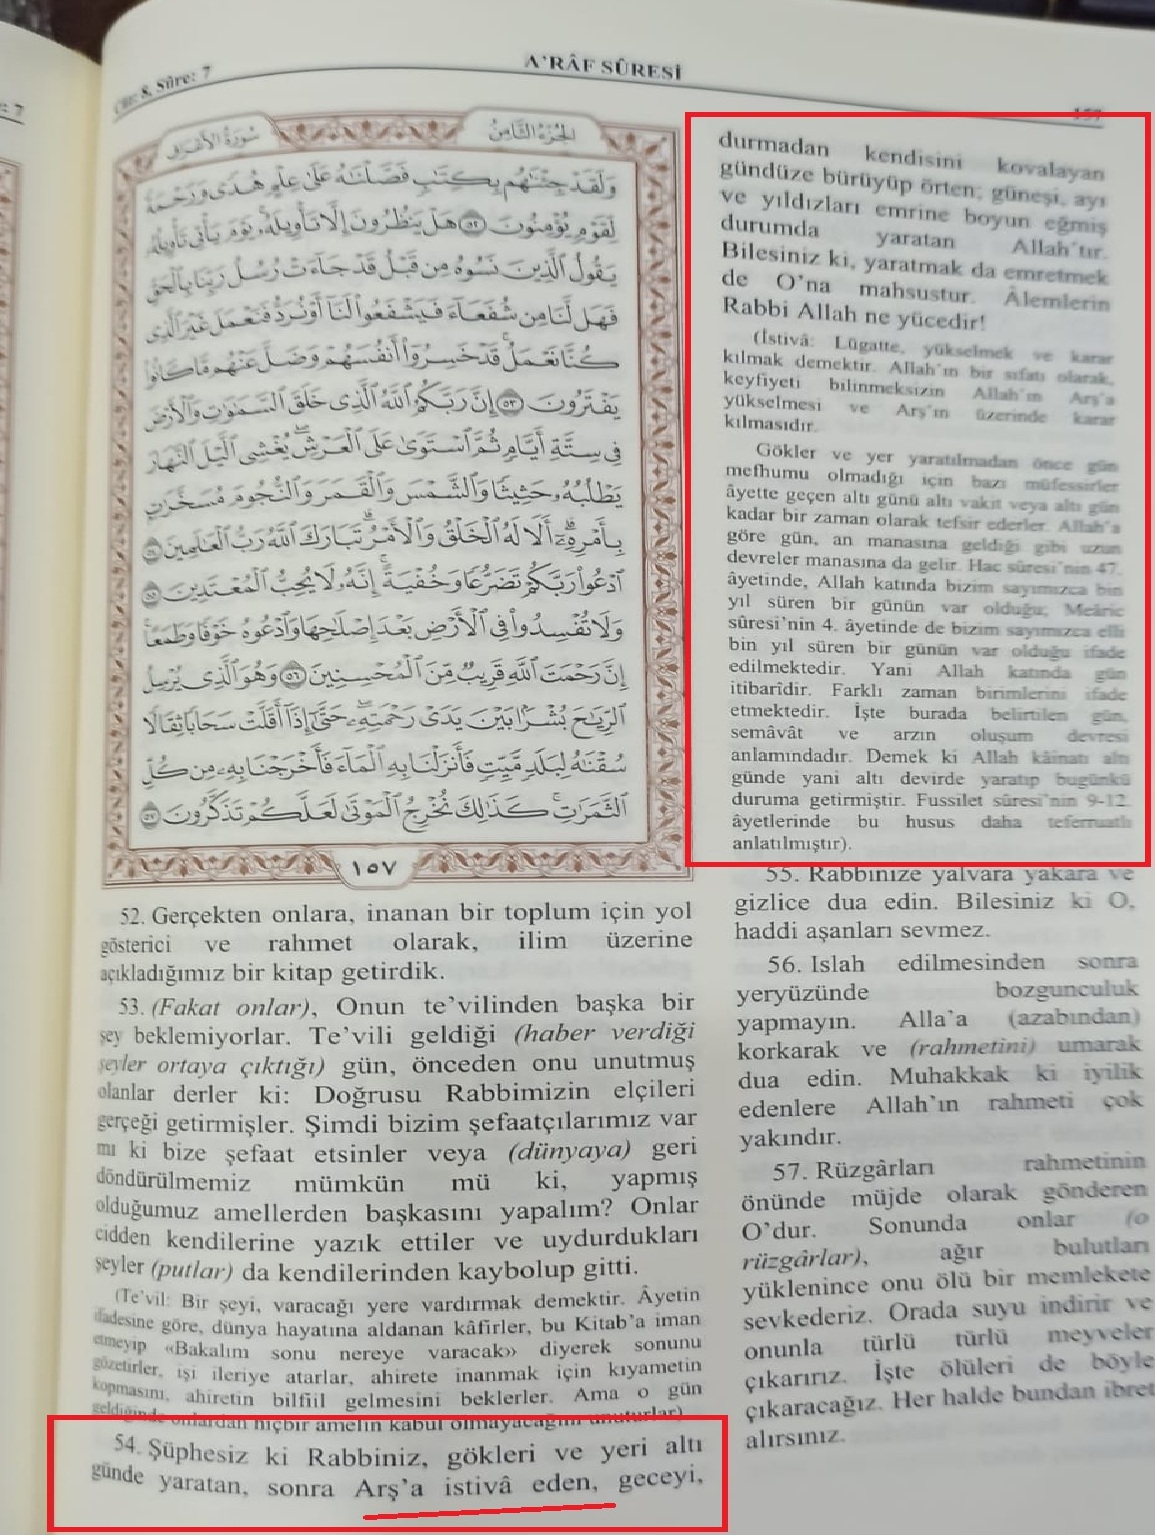 Cüz: 8, Sûre: 7
A'RÂF SÛRESİ
157
سُورَةُ الأَعْرَافِ
الجُزْءُ الثَّامِنُ
وَلَقَدْ جِئْنَاهُمْ بِكِتَابٍ فَصَّلْنَاهُ عَلَىٰ عِلْمٍ هُدًى وَرَحْمَةً
لِقَوْمٍ يُؤْمِنُونَ ﴿٥٢﴾ هَلْ يَنْظُرُونَ إِلَّا تَأْوِيلَهُ يَوْمَ يَأْتِي تَأْوِيلُهُ
يَقُولُ الَّذِينَ نَسُوهُ مِنْ قَبْلُ قَدْ جَاءَتْ رُسُلُ رَبِّنَا بِالْحَقِّ
فَهَلْ لَنَا مِنْ شُفَعَاءَ فَيَشْفَعُوا لَنَا أَوْ نُرَدُّ فَنَعْمَلَ غَيْرَ الَّذِي
كُنَّا نَعْمَلُ قَدْ خَسِرُوا أَنْفُسَهُمْ وَضَلَّ عَنْهُمْ مَا كَانُوا
يَفْتَرُونَ ﴿٥٣﴾ إِنَّ رَبَّكُمُ اللَّهُ الَّذِي خَلَقَ السَّمَوَاتِ وَالْأَرْضَ
فِي سِتَّةِ أَيَّامٍ ثُمَّ اسْتَوَىٰ عَلَى الْعَرْشِ يُغْشِي اللَّيْلَ النَّهَارَ
يَطْلُبُهُ حَثِيثًا وَالشَّمْسَ وَالْقَمَرَ وَالنُّجُومَ مُسَخَّرَاتٍ
بِأَمْرِهِ أَلَا لَهُ الْخَلْقُ وَالْأَمْرُ تَبَارَكَ اللَّهُ رَبُّ الْعَالَمِينَ ﴿٥٤﴾
ادْعُوا رَبَّكُمْ تَضَرُّعًا وَخُفْيَةً إِنَّهُ لَا يُحِبُّ الْمُعْتَدِينَ ﴿٥٥﴾
وَلَا تُفْسِدُوا فِي الْأَرْضِ بَعْدَ إِصْلَاحِهَا وَادْعُوهُ خَوْفًا وَطَمَعًا
إِنَّ رَحْمَتَ اللَّهِ قَرِيبٌ مِنَ الْمُحْسِنِينَ ﴿٥٦﴾ وَهُوَ الَّذِي يُرْسِلُ
الرِّيَاحَ بُشْرًا بَيْنَ يَدَيْ رَحْمَتِهِ حَتَّىٰ إِذَا أَقَلَّتْ سَحَابًا ثِقَالًا
سُقْنَاهُ لِبَلَدٍ مَيِّتٍ فَأَنْزَلْنَا بِهِ الْمَاءَ فَأَخْرَجْنَا بِهِ مِنْ كُلِّ
الثَّمَرَاتِ كَذَلِكَ نُخْرِجُ الْمَوْتَىٰ لَعَلَّكُمْ تَذَكَّرُونَ ﴿٥٧﴾
١٥٧
52. Gerçekten onlara, inanan bir toplum için yol
gösterici ve rahmet olarak, ilim üzerine
açıkladığımız bir kitap getirdik.
53. (Fakat onlar), Onun te'vilinden başka bir
şey beklemiyorlar. Te'vili geldiği (haber verdiği
şeyler ortaya çıktığı) gün, önceden onu unutmuş
olanlar derler ki: Doğrusu Rabbimizin elçileri
gerçeği getirmişler. Şimdi bizim şefaatçılarımız var
mı ki bize şefaat etsinler veya (dünyaya) geri
döndürülmemiz mümkün mü ki, yapmış
olduğumuz amellerden başkasını yapalım? Onlar
cidden kendilerine yazık ettiler ve uydurdukları
şeyler (putlar) da kendilerinden kaybolup gitti.
(Te'vil: Bir şeyi, varacağı yere vardırmak demektir. Âyetin
ifadesine göre, dünya hayatına aldanan kâfirler, bu Kitab'a iman
etmeyip «Bakalım sonu nereye varacak» diyerek sonunu
gözetirler, işi ileriye atarlar, ahirete inanmak için kıyametin
kopmasını, ahiretin bilfiil gelmesini beklerler. Ama o gün
geldiğinde onlardan hiçbir amelin kabul olmayacağını unuturlar).
54. Şüphesiz ki Rabbiniz, gökleri ve yeri altı
günde yaratan, sonra Arş'a istivâ eden, geceyi,
durmadan kendisini kovalayan
gündüze bürüyüp örten; güneşi, ayı
ve yıldızları emrine boyun eğmiş
durumda yaratan Allah'tır.
Bilesiniz ki, yaratmak da emretmek
de O'na mahsustur. Âlemlerin
Rabbi Allah ne yücedir!
(İstivâ: Lügatte, yükselmek ve karar
kılmak demektir. Allah'ın bir sıfatı olarak,
keyfiyeti bilinmeksizin Allah'ın Arş'a
yükselmesi ve Arş'ın üzerinde karar
kılmasıdır.
Gökler ve yer yaratılmadan önce gün
mefhumu olmadığı için bazı müfessirler
âyette geçen altı günü altı vakit veya altı gün
kadar bir zaman olarak tefsir ederler. Allah'a
göre gün, an manasına geldiği gibi uzun
devreler manasına da gelir. Hac sûresi'nin 47.
âyetinde, Allah katında bizim sayımızca bin
yıl süren bir günün var olduğu; Meâric
sûresi'nin 4. âyetinde de bizim sayımızca elli
bin yıl süren bir günün var olduğu ifade
edilmektedir. Yani Allah katında gün
itibarîdir. Farklı zaman birimlerini ifade
etmektedir. İşte burada belirtilen gün,
semâvât ve arzın oluşum devresi
anlamındadır. Demek ki Allah kâinatı altı
günde yani altı devirde yaratıp bugünkü
duruma getirmiştir. Fussilet sûresi'nin 9-12.
âyetlerinde bu husus daha teferruatlı
anlatılmıştır).
55. Rabbinize yalvara yakara ve
gizlice dua edin. Bilesiniz ki O,
haddi aşanları sevmez.
56. Islah edilmesinden sonra
yeryüzünde bozgunculuk
yapmayın. Alla'a (azabından)
korkarak ve (rahmetini) umarak
dua edin. Muhakkak ki iyilik
edenlere Allah'ın rahmeti çok
yakındır.
57. Rüzgârları rahmetinin
önünde müjde olarak gönderen
O'dur. Sonunda onlar (o
rüzgârlar), ağır bulutları
yüklenince onu ölü bir memlekete
sevkederiz. Orada suyu indirir ve
onunla türlü türlü meyveler
çıkarırız. İşte ölüleri de böyle
çıkaracağız. Her halde bundan ibret
alırsınız.